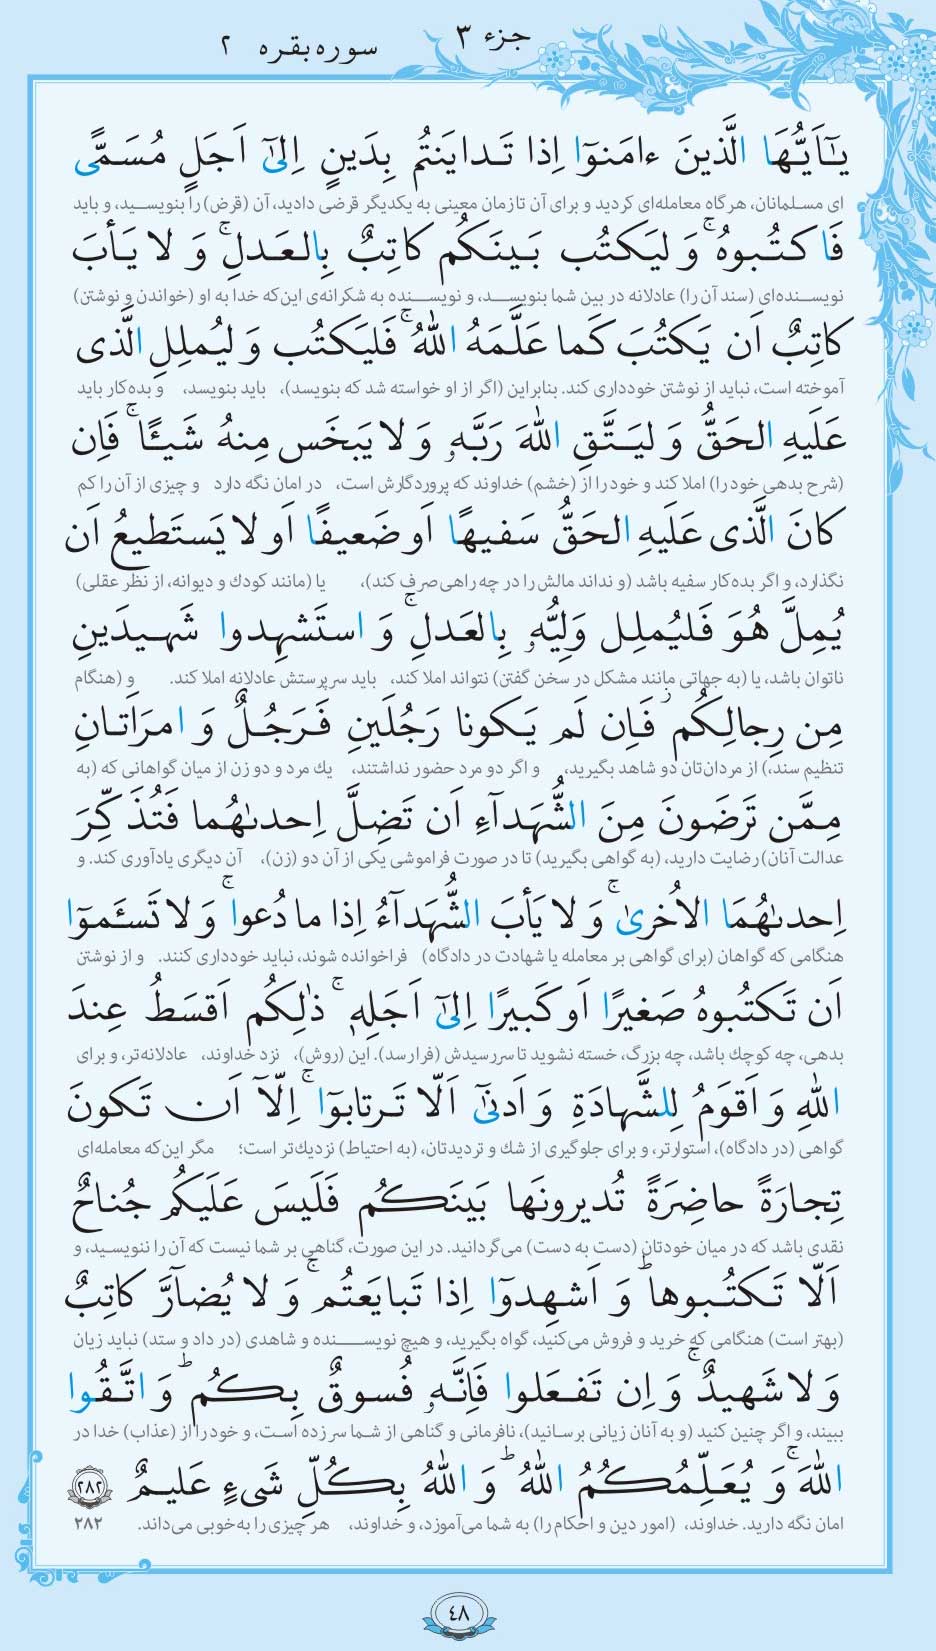 جزء ۳
سوره بقره ۲
يـٰٓاَيُّهَا الَّذينَ ءامَنوٓا اِذا تَدايَنتُم بِدَينٍ اِلىٰٓ اَجَلٍ مُسَمًّى
ای مسلمانان، هرگاه معامله‌ای کردید و برای آن تا زمان معینی به یکدیگر قرضی دادید، آن (قرض) را بنویسید، و باید
فَاكتُبوهُ ۚ وَ ليَكتُب بَينَكُم كاتِبٌ بِالعَدلِ ۚ وَ لا يَأبَ
نویسنده‌ای (سند آن را) عادلانه در بین شما بنویسد، و نویسنده به شکرانه‌ی این‌که خدا به او (خواندن و نوشتن)
كاتِبٌ اَن يَكتُبَ كَما عَلَّمَهُ اللّٰهُ ۚ فَليَكتُب وَ ليُملِلِ الَّذى
آموخته است، نباید از نوشتن خودداری کند. بنابراین (اگر از او خواسته شد که بنویسد)، باید بنویسد، و بده‌کار باید
عَلَيهِ الحَقُّ وَ ليَتَّقِ اللّٰهَ رَبَّهٗ وَ لا يَبخَس مِنهُ شَيـًٔا ۚ فَاِن
(شرح بدهی خود را) املا کند و خود را از (خشم) خداوند که پروردگارش است، در امان نگه دارد و چیزی از آن را کم
كانَ الَّذى عَلَيهِ الحَقُّ سَفيهًا اَو ضَعيفًا اَو لا يَستَطيعُ اَن
نگذارد، و اگر بده‌کار سفیه باشد (و نداند مالش را در چه راهی صرف کند)، یا (مانند کودك و دیوانه، از نظر عقلی)
يُمِلَّ هُوَ فَليُملِل وَلِيُّهٗ بِالعَدلِ ۚ وَ استَشهِدوا شَهيدَينِ
ناتوان باشد، یا (به جهاتی مانند مشکل در سخن گفتن) نتواند املا کند، باید سرپرستش عادلانه املا کند. و (هنگام
مِن رِجالِكُم ۖ فَاِن لَم يَكونا رَجُلَينِ فَرَجُلٌ وَ امرَاَتانِ
تنظیم سند،) از مردان‌تان دو شاهد بگیرید، و اگر دو مرد حضور نداشتند، یك مرد و دو زن از میان گواهانی که (به
مِمَّن تَرضَونَ مِنَ الشُّهَدآءِ اَن تَضِلَّ اِحدىٰهُما فَتُذَكِّرَ
عدالت آنان) رضایت دارید، (به گواهی بگیرید) تا در صورت فراموشی یکی از آن دو (زن)، آن دیگری یادآوری کند. و
اِحدىٰهُمَا الاُخرىٰ ۚ وَ لا يَأبَ الشُّهَدآءُ اِذا ما دُعوا ۚ وَ لا تَسـَٔموٓا
هنگامی که گواهان (برای گواهی بر معامله یا شهادت در دادگاه) فراخوانده شوند، نباید خودداری کنند. و از نوشتن
اَن تَكتُبوهُ صَغيرًا اَو كَبيرًا اِلىٰٓ اَجَلِهٖ ۚ ذٰلِكُم اَقسَطُ عِندَ
بدهی، چه کوچك باشد، چه بزرگ، خسته نشوید تا سررسیدش (فرا رسد). این (روش)، نزد خداوند، عادلانه‌تر، و برای
اللّٰهِ وَ اَقوَمُ لِلشَّهادَةِ وَ اَدنىٰٓ اَلّا تَرتابوٓا ۚ اِلّآ اَن تَكونَ
گواهی (در دادگاه)، استوارتر، و برای جلوگیری از شك و تردیدتان، (به احتیاط) نزدیك‌تر است؛ مگر این‌که معامله‌ای
تِجارَةً حاضِرَةً تُديرونَها بَينَكُم فَلَيسَ عَلَيكُم جُناحٌ
نقدی باشد که در میان خودتان (دست به دست) می‌گردانید. در این صورت، گناهی بر شما نیست که آن را ننویسید، و
اَلّا تَكتُبوها ۗ وَ اَشهِدوٓا اِذا تَبايَعتُم ۚ وَ لا يُضآرَّ كاتِبٌ
(بهتر است) هنگامی که خرید و فروش می‌کنید، گواه بگیرید، و هیچ نویسنده و شاهدی (در داد و ستد) نباید زیان
وَ لا شَهيدٌ ۚ وَ اِن تَفعَلوا فَاِنَّهٗ فُسوقٌ بِكُم ۗ وَ اتَّقُوا
ببیند، و اگر چنین کنید (و به آنان زیانی برسانید)، نافرمانی و گناهی از شما سر زده است، و خود را از (عذاب) خدا در
اللّٰهَ ۚ وَ يُعَلِّمُكُمُ اللّٰهُ ۗ وَ اللّٰهُ بِكُلِّ شَىءٍ عَليمٌ ۲۸۲
امان نگه دارید. خداوند، (امور دین و احکام را) به شما می‌آموزد، و خداوند، هر چیزی را به‌خوبی می‌داند. ۲۸۲
۴۸